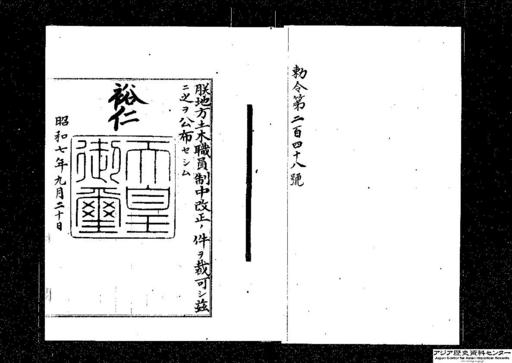 朕地方土木職員制中改正ノ件ヲ裁可シ茲
ニ之ヲ公布セシム
裕仁
天皇
御璽
昭和七年九月二十日
勅令第二百四十八號
アジア歴史資料センター
Japan Center for Asian Historical Records